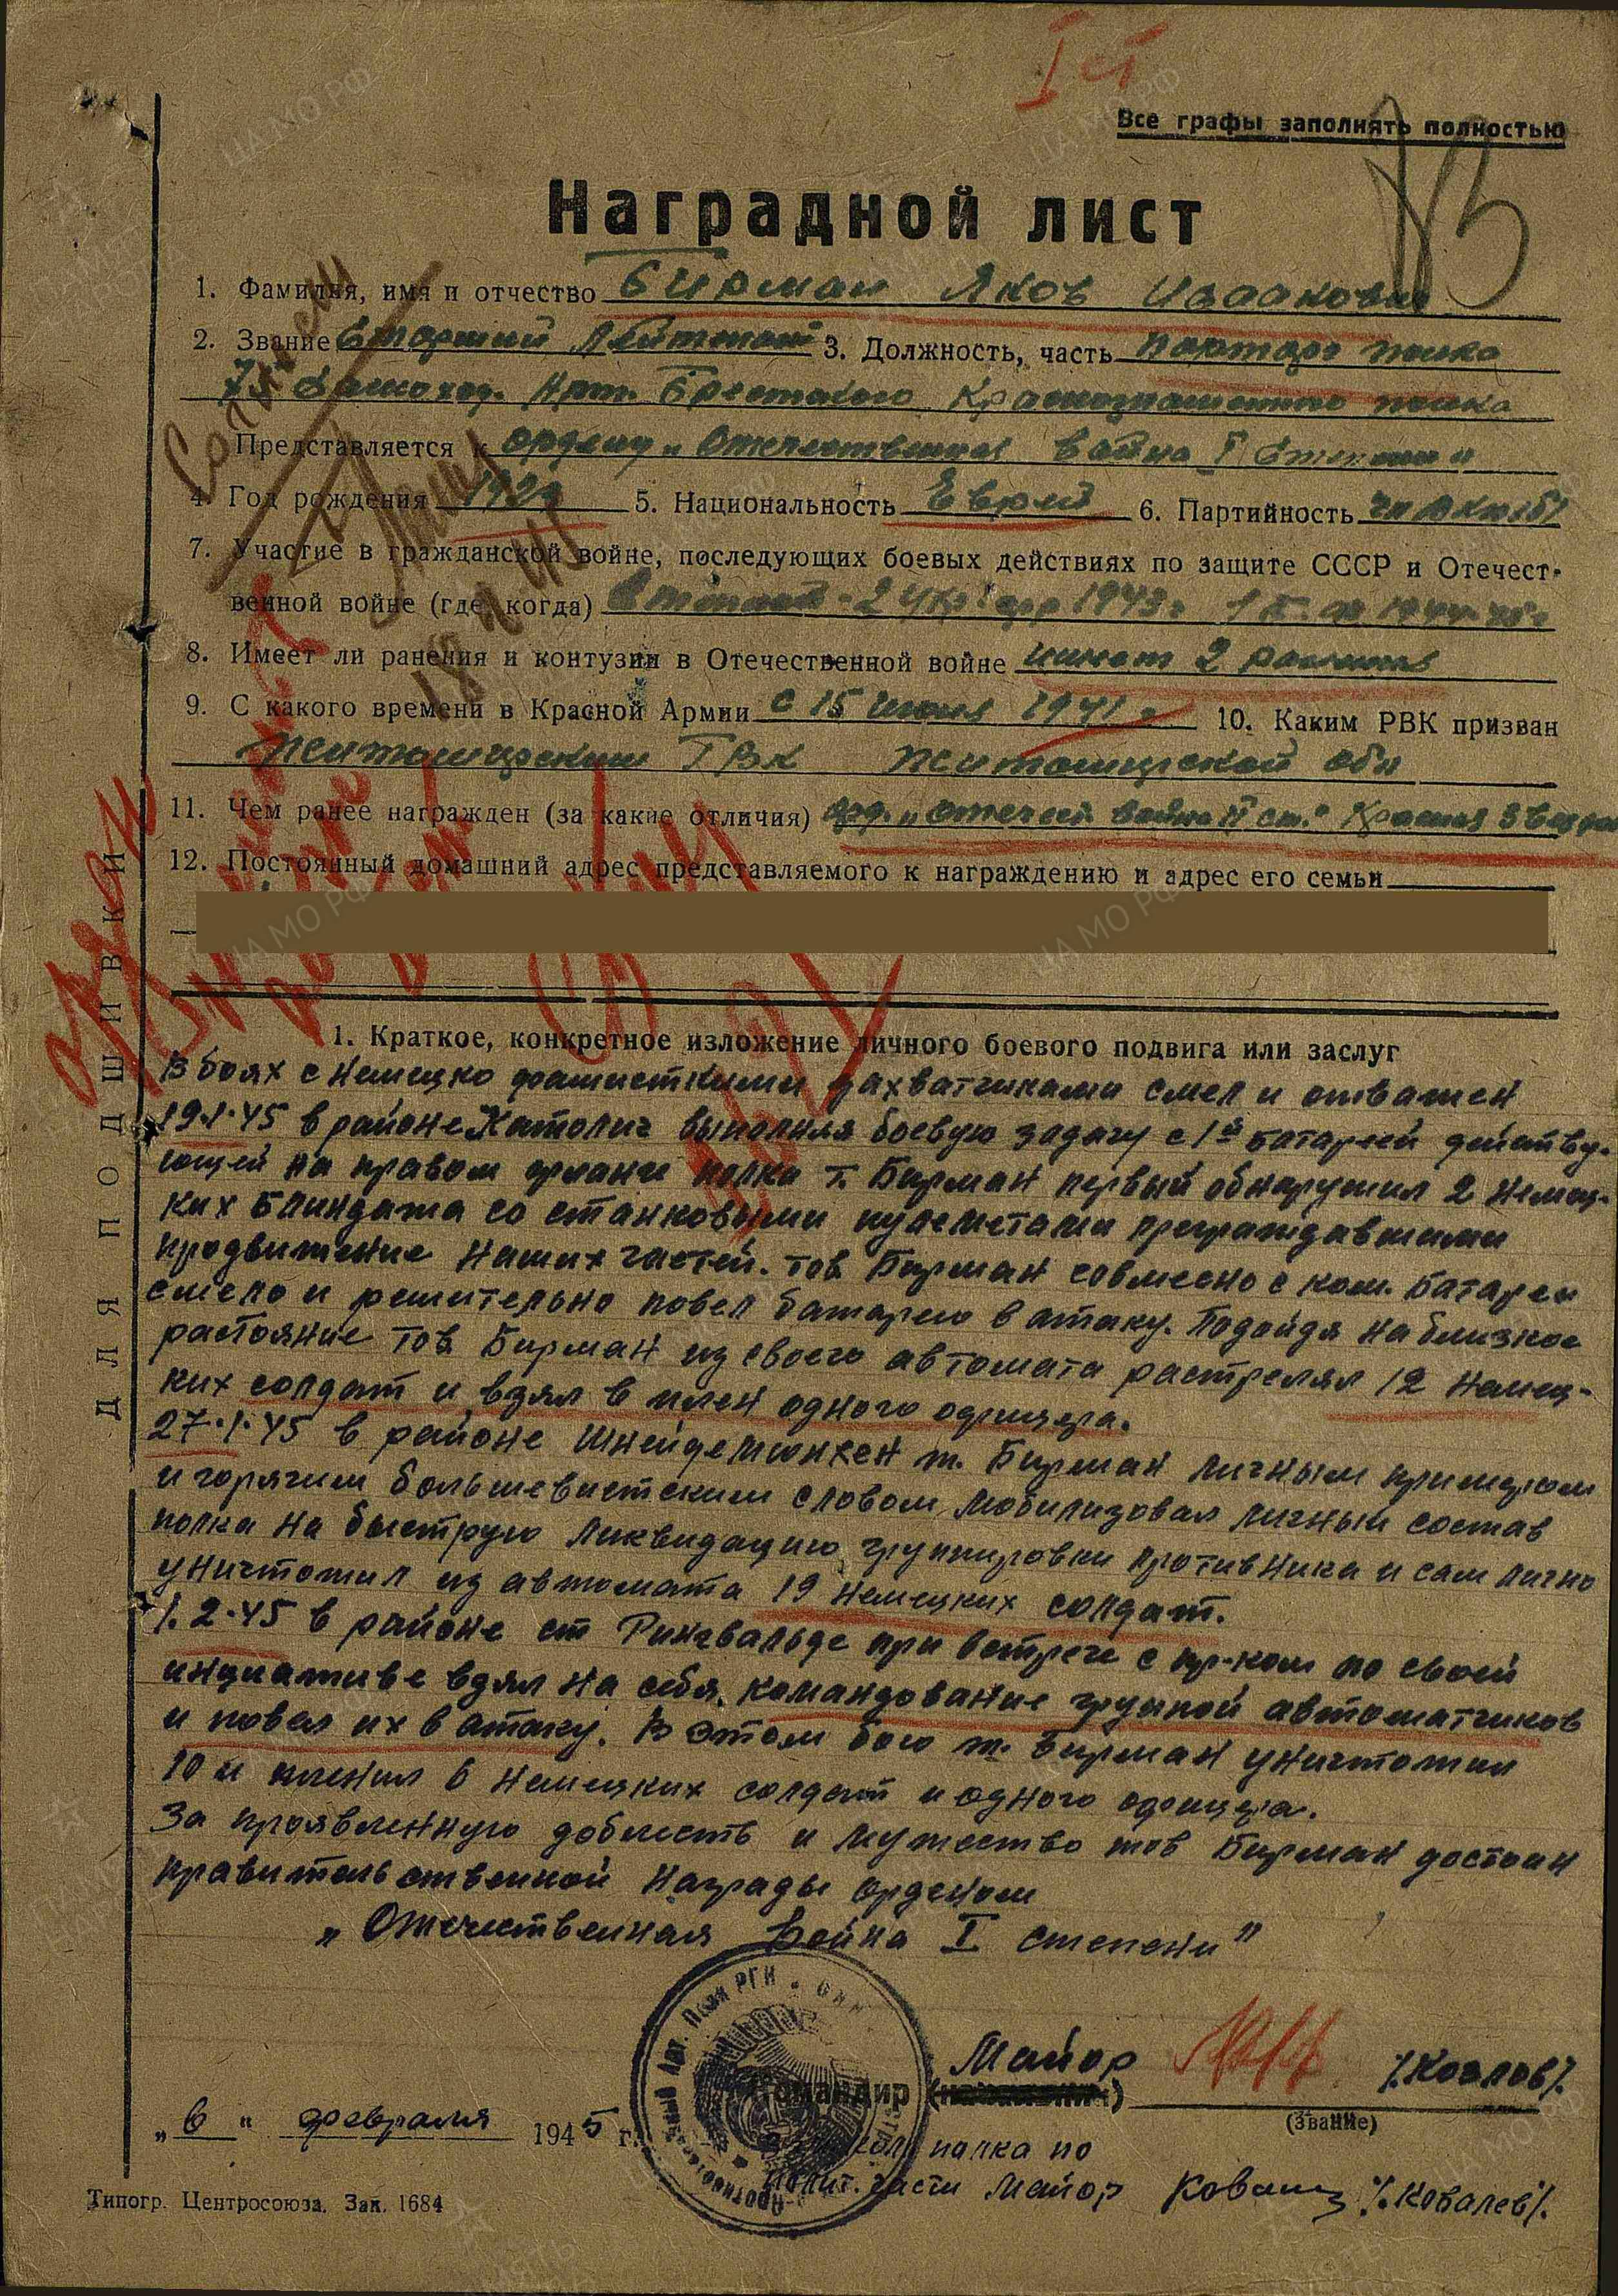 Iст
Все графы заполнять полностью
Наградной лист
1. Фамилия, имя и отчество Бирман Яков Исаакович
2. Звание Старший Лейтенант 3. Должность, часть парторг полка
Самоход. Арт. Брестского Краснознаменного полка
Представляется к ордену „Отечественная война I степени"
4. Год рождения 5. Национальность Еврей 6. Партийность чл ВКП(б)
7. Участие в гражданской войне, последующих боевых действиях по защите СССР и Отечест-
венной войне (где, когда) 2 Укр. фр 1943г 1 Б. ф 1944-45г
8. Имеет ли ранения и контузии в Отечественной войне имеет 2 ранения
9. С какого времени в Красной Армии с 15 1941 г 10. Каким РВК призван
Житомирским ГВК Житомирской обл
11. Чем ранее награжден (за какие отличия) орд. „Отечест война II ст." Красная Звезда
12. Постоянный домашний адрес представляемого к награждению и адрес его семьи
ДЛЯ ПОДШИВКИ
1. Краткое, конкретное изложение личного боевого подвига или заслуг
В боях с немецко фашисткими захватчиками смел и отважен
19.1.45 в районе Католич выполняя боевую задачу с 1й батареей действу-
ющей на правом фланге полка т. Бирман первый обнаружил 2 немец-
ких блиндажа со станковыми пулеметами преграждавшими
продвижение наших частей. тов Бирман совмесно с ком. батареи
смело и решительно повел батарею в атаку. Подойдя на близкое
растояние тов Бирман из своего автомата растрелял 12 немец-
ких солдат и взял в плен одного офицера.
27.1.45 в районе Шнейдемюнхен т. Бирман личным примером
и горячим большевистским словом мобилизовал личный состав
полка на быструю ликвидацию группировки противника и сам лично
уничтожил из автомата 19 немецких солдат.
1.2.45 в районе ст Рингвальде при встрече с пр-ком по своей
инциативе взял на себя командование группой автоматчиков
и повел их в атаку. В этом бою т. Бирман уничтожил
10 и пленил 6 немецких солдат и одного офицера.
За проявленную доблесть и мужество тов Бирман достоин
правительственной награды орденом
„Отечественная Война I степени"
Майор /.Козлов/.
Командир
(звание)
„6" февраля 1945 г.
полка по
полит. части майор /.Ковалев/.
Типогр. Центросоюза. Зак. 1684